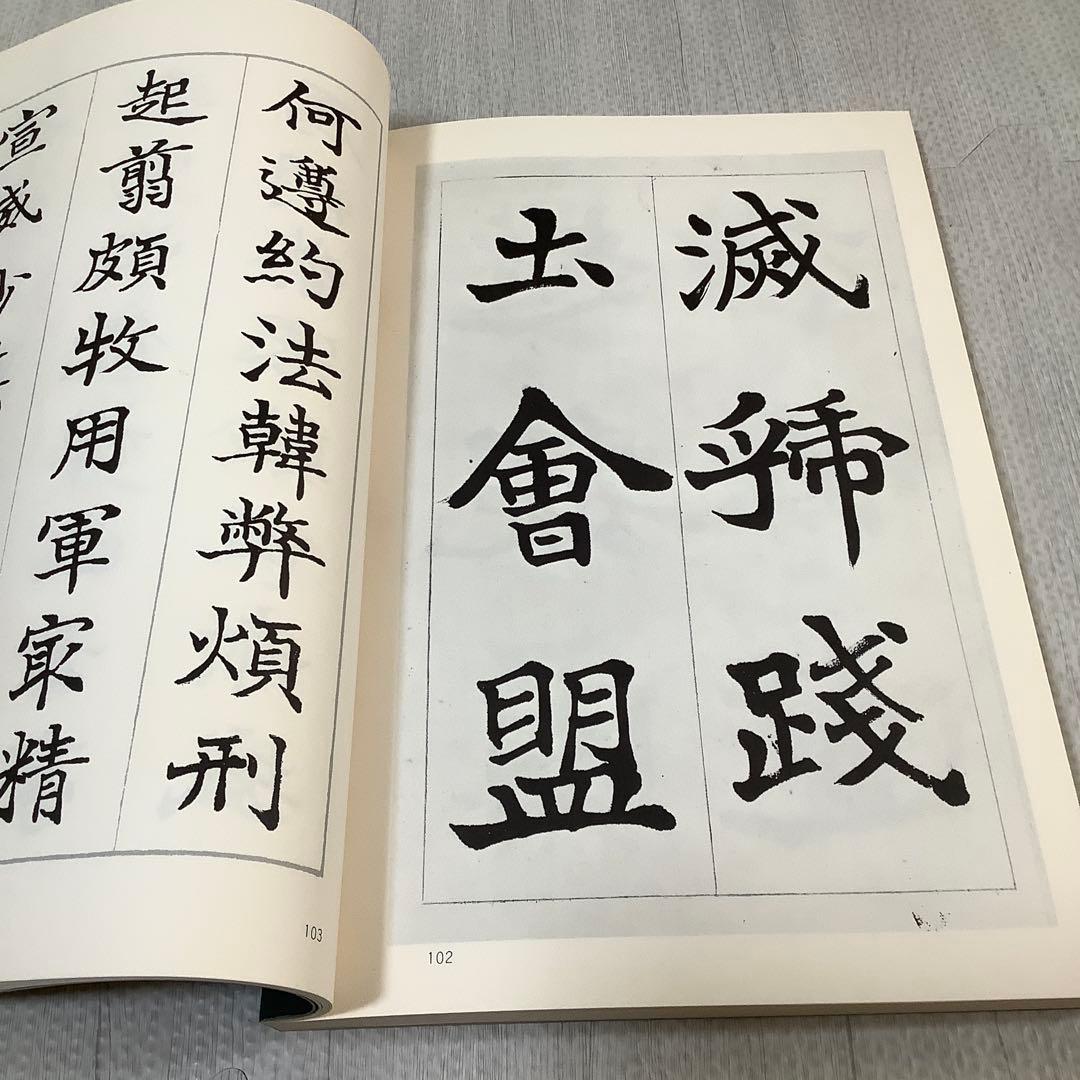 滅虢踐
圡會盟
102
何遵約法韓弊煩刑
起翦頗牧用軍㝡精
宣威沙
103